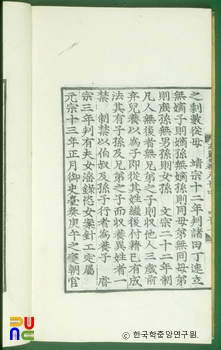 之制數從母 靖宗十二年判諸田丁連立
無嫡子則嫡孫無嫡孫則同母弟無同母弟
則庶孫無男孫則女孫 文宗二十二年制
凡人無後者無兄弟之子則收他人三歲前
棄兒養以爲子卽從其姓繼後付籍已有成
法其有子孫及兄弟之子而收養異姓者一
禁 制禁以伯叔及孫子行者爲養子 睿
宗三年判有夫女淫錄恣女案針工定屬
元宗十三年正月御史臺奏庚午之變朝官
한국학중앙연구원